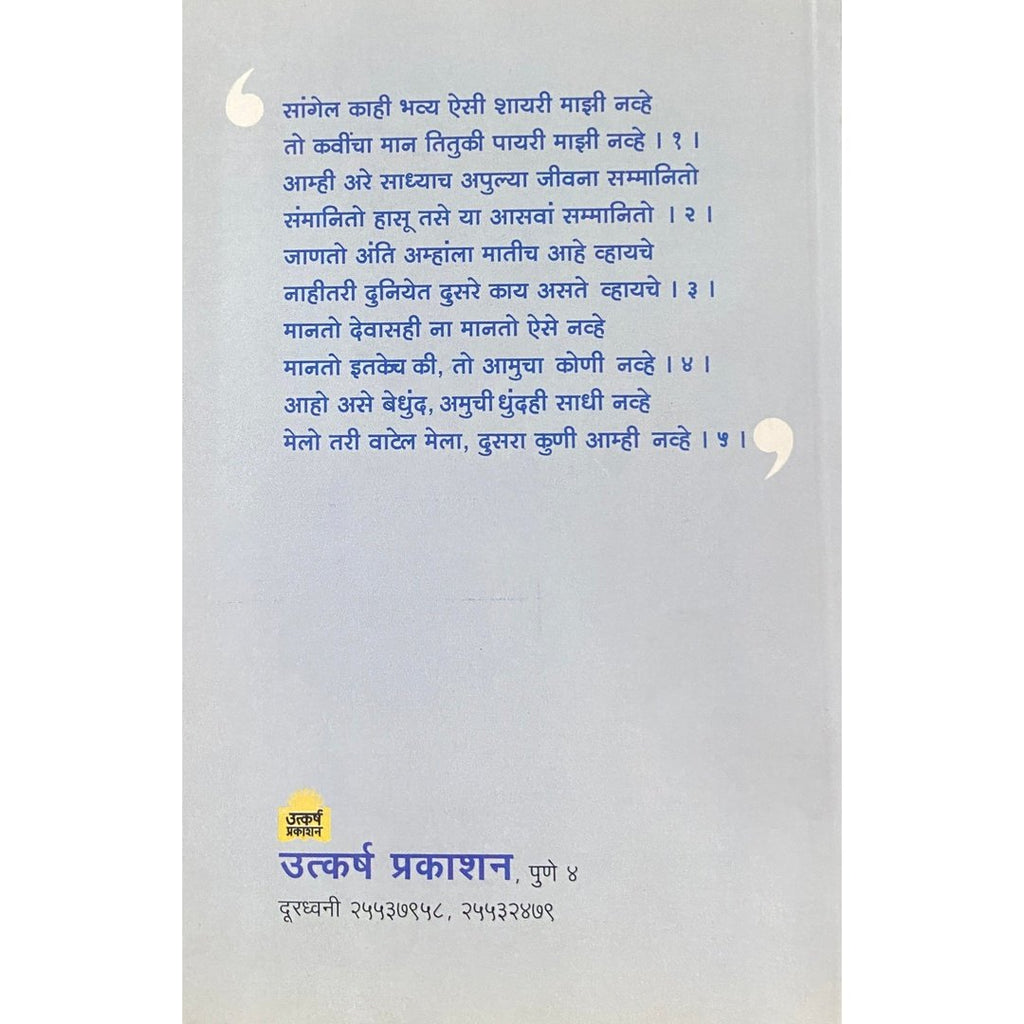 सांगेल काही भव्य ऐसी शायरी माझी नव्हे
तो कवींचा मान तितुकी पायरी माझी नव्हे । १ ।
आम्ही अरे साध्याच अपुल्या जीवना सम्मानितो
संमानितो हासू तसे या आसवां सम्मानितो । २ ।
जाणतो अंति अम्हांला मातीच आहे व्हायचे
नाहीतरी दुनियेत दुसरे काय असते व्हायचे । ३ ।
मानतो देवासही ना मानतो ऐसे नव्हे
मानतो इतकेच की, तो आमुचा कोणी नव्हे । ४ ।
आहो असे बेधुंद, अमुची धुंदही साधी नव्हे
मेलो तरी वाटेल मेला, दुसरा कुणी आम्ही नव्हे । ५ ।
उत्कर्ष
प्रकाशन
उत्कर्ष प्रकाशन, पुणे ४
दूरध्वनी २५५३७९५८, २५५३२४७९